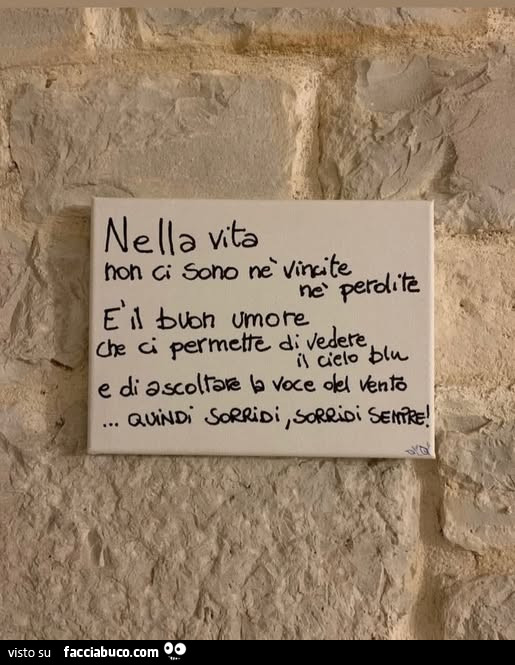 Nella vita
non ci sono nè vincite
nè perdite
E' il buon umore
che ci permette di vedere
il cielo blu
e di ascoltare la voce del vento
... QUINDI SORRIDI, SORRIDI SEMPRE!
visto su facciabuco.com